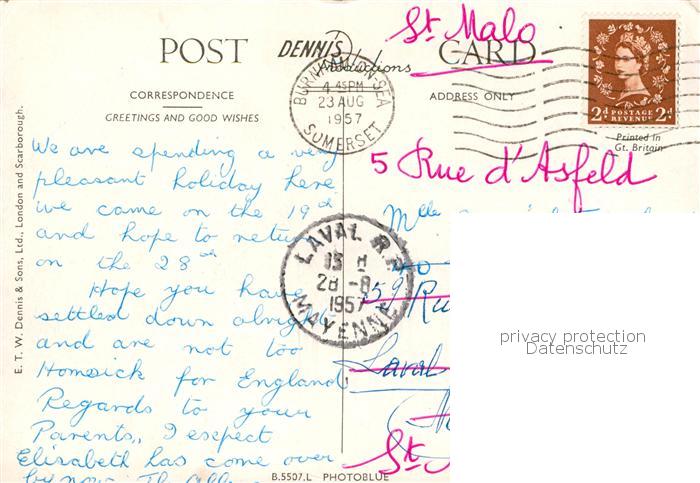 St Malo
POST DENNIS Productions CARD
BURNHAM-ON-SEA
4 45PM
23 AUG
1957
SOMERSET
2d POSTAGE REVENUE 2d
CORRESPONDENCE
ADDRESS ONLY
GREETINGS AND GOOD WISHES
Printed in
Gt. Britain
E. T. W. Dennis & Sons, Ltd., London and Scarborough.
We are spending a very
pleasant holiday here
we came on the 19th
and hope to return
on the 28th
Hope you have
settled down alright
and are not too
Homsick for England
Regards to your
Parents., I esepect
Elisabeth has come over
by now.
5 Rue d'Asfeld
Mlle
LAVAL R.P.
28-8
1957
MAYENNE
59 Ru
Laval
St
B.5507.L PHOTOBLUE
privacy protection
Datenschutz